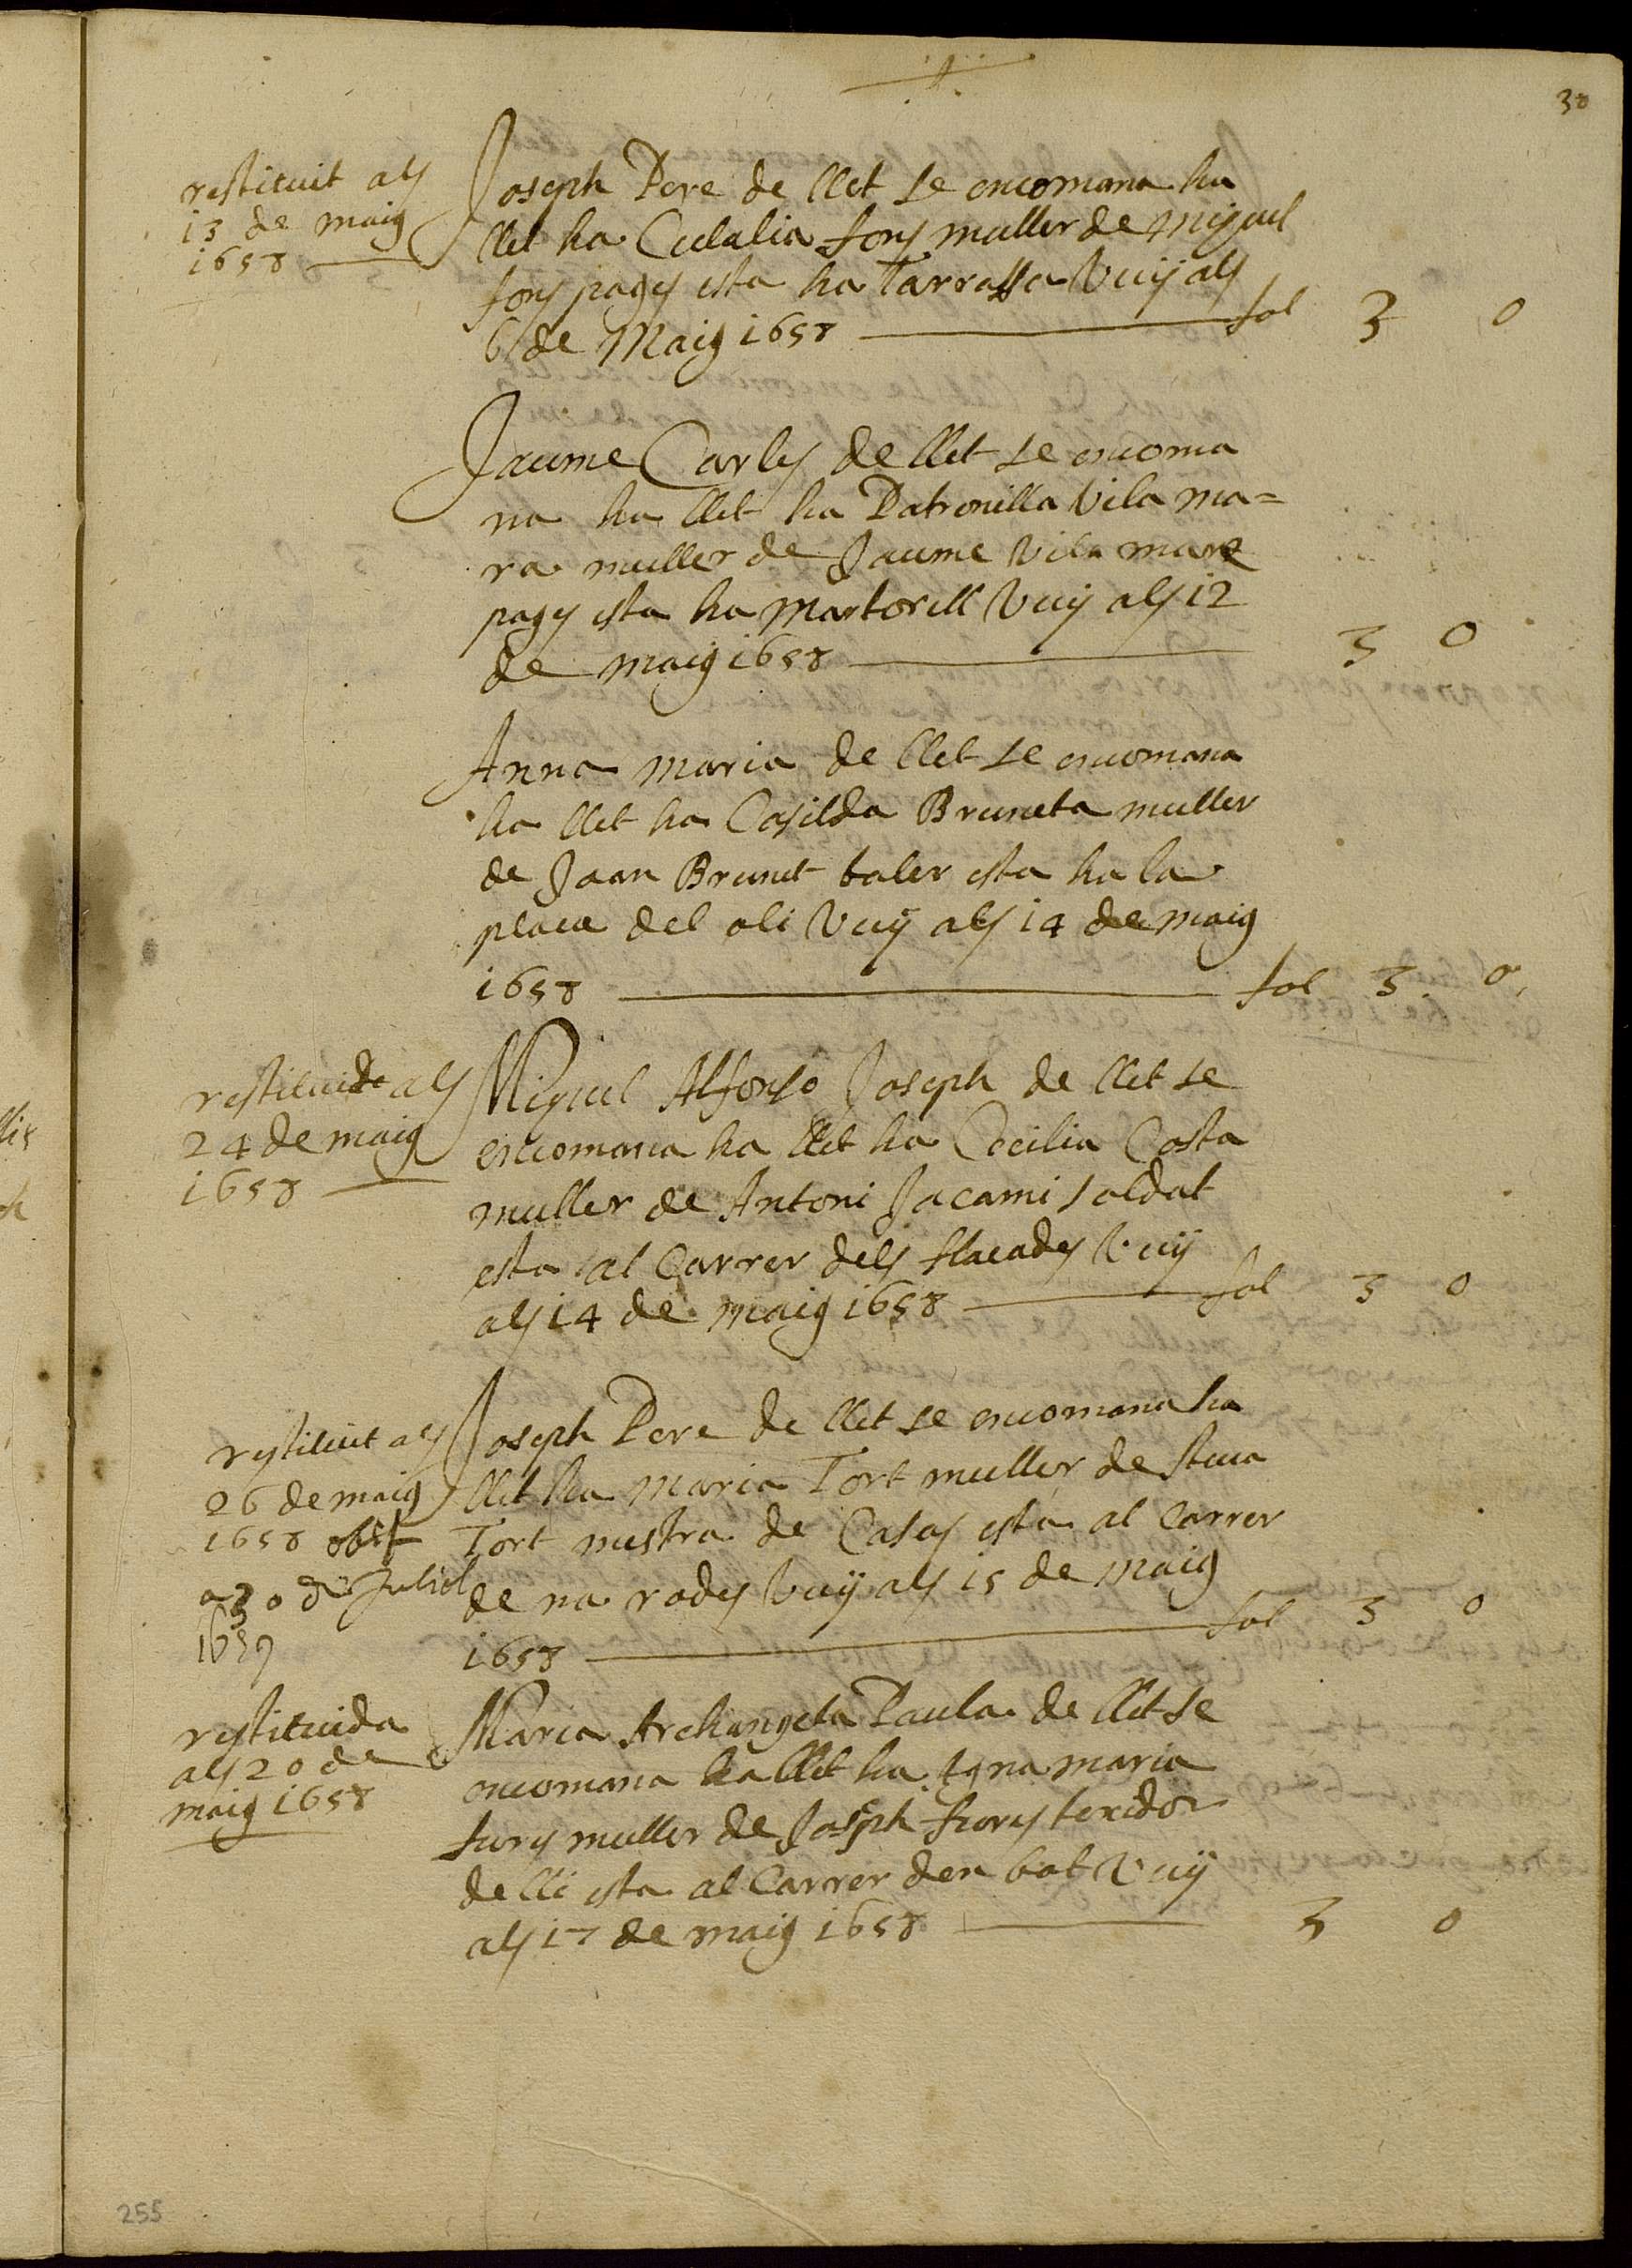 30
restituit als
13 de maig
1658
Joseph Pere de llet se encomana ha
llet ha Eulalia fons muller de Miquel
fons pages esta ha Tarrassa Vuÿ als
6 de Maig 1658 fol 3 0
Jaume Carles de llet se encoma
na ha llet ha Patronilla Vila ma=
ra muller de Jaume Vila mara
pages esta ha Martorell Vuÿ als 12
de maig 1658 3 0
Anna maria de llet se encomana
ha llet ha Casilda Bruneta muller
de Joan Brunet baler esta ha la
plaça del oli Vuÿ als 14 de maig
1658 fol 3 0
restituit als
24 de maig
1658
Miquel Alfonso Joseph de llet se
encomana ha llet ha Cecilia Costa
muller de Antoni Jacami soldat
esta al Carrer dels flacades Vuÿ
als 14 de maig 1658 fol 3 0
restituit als
26 de maig
1658 obit
a 30 de Juliol
1659
Joseph Pere de llet se encomana ha
llet ha Maria Tort muller de
Tort mestra de Casas esta al Carrer
de na rodes Vuÿ als 15 de maig
1658 fol 3 0
restituida
als 20 de
maig 1658
Maria Archangela Paula de llet se
encomana ha llet ha maria
muller de Joseph texidor
de lli esta al Carrer den bot Vuÿ
als 17 de maig 1658 3 0
255